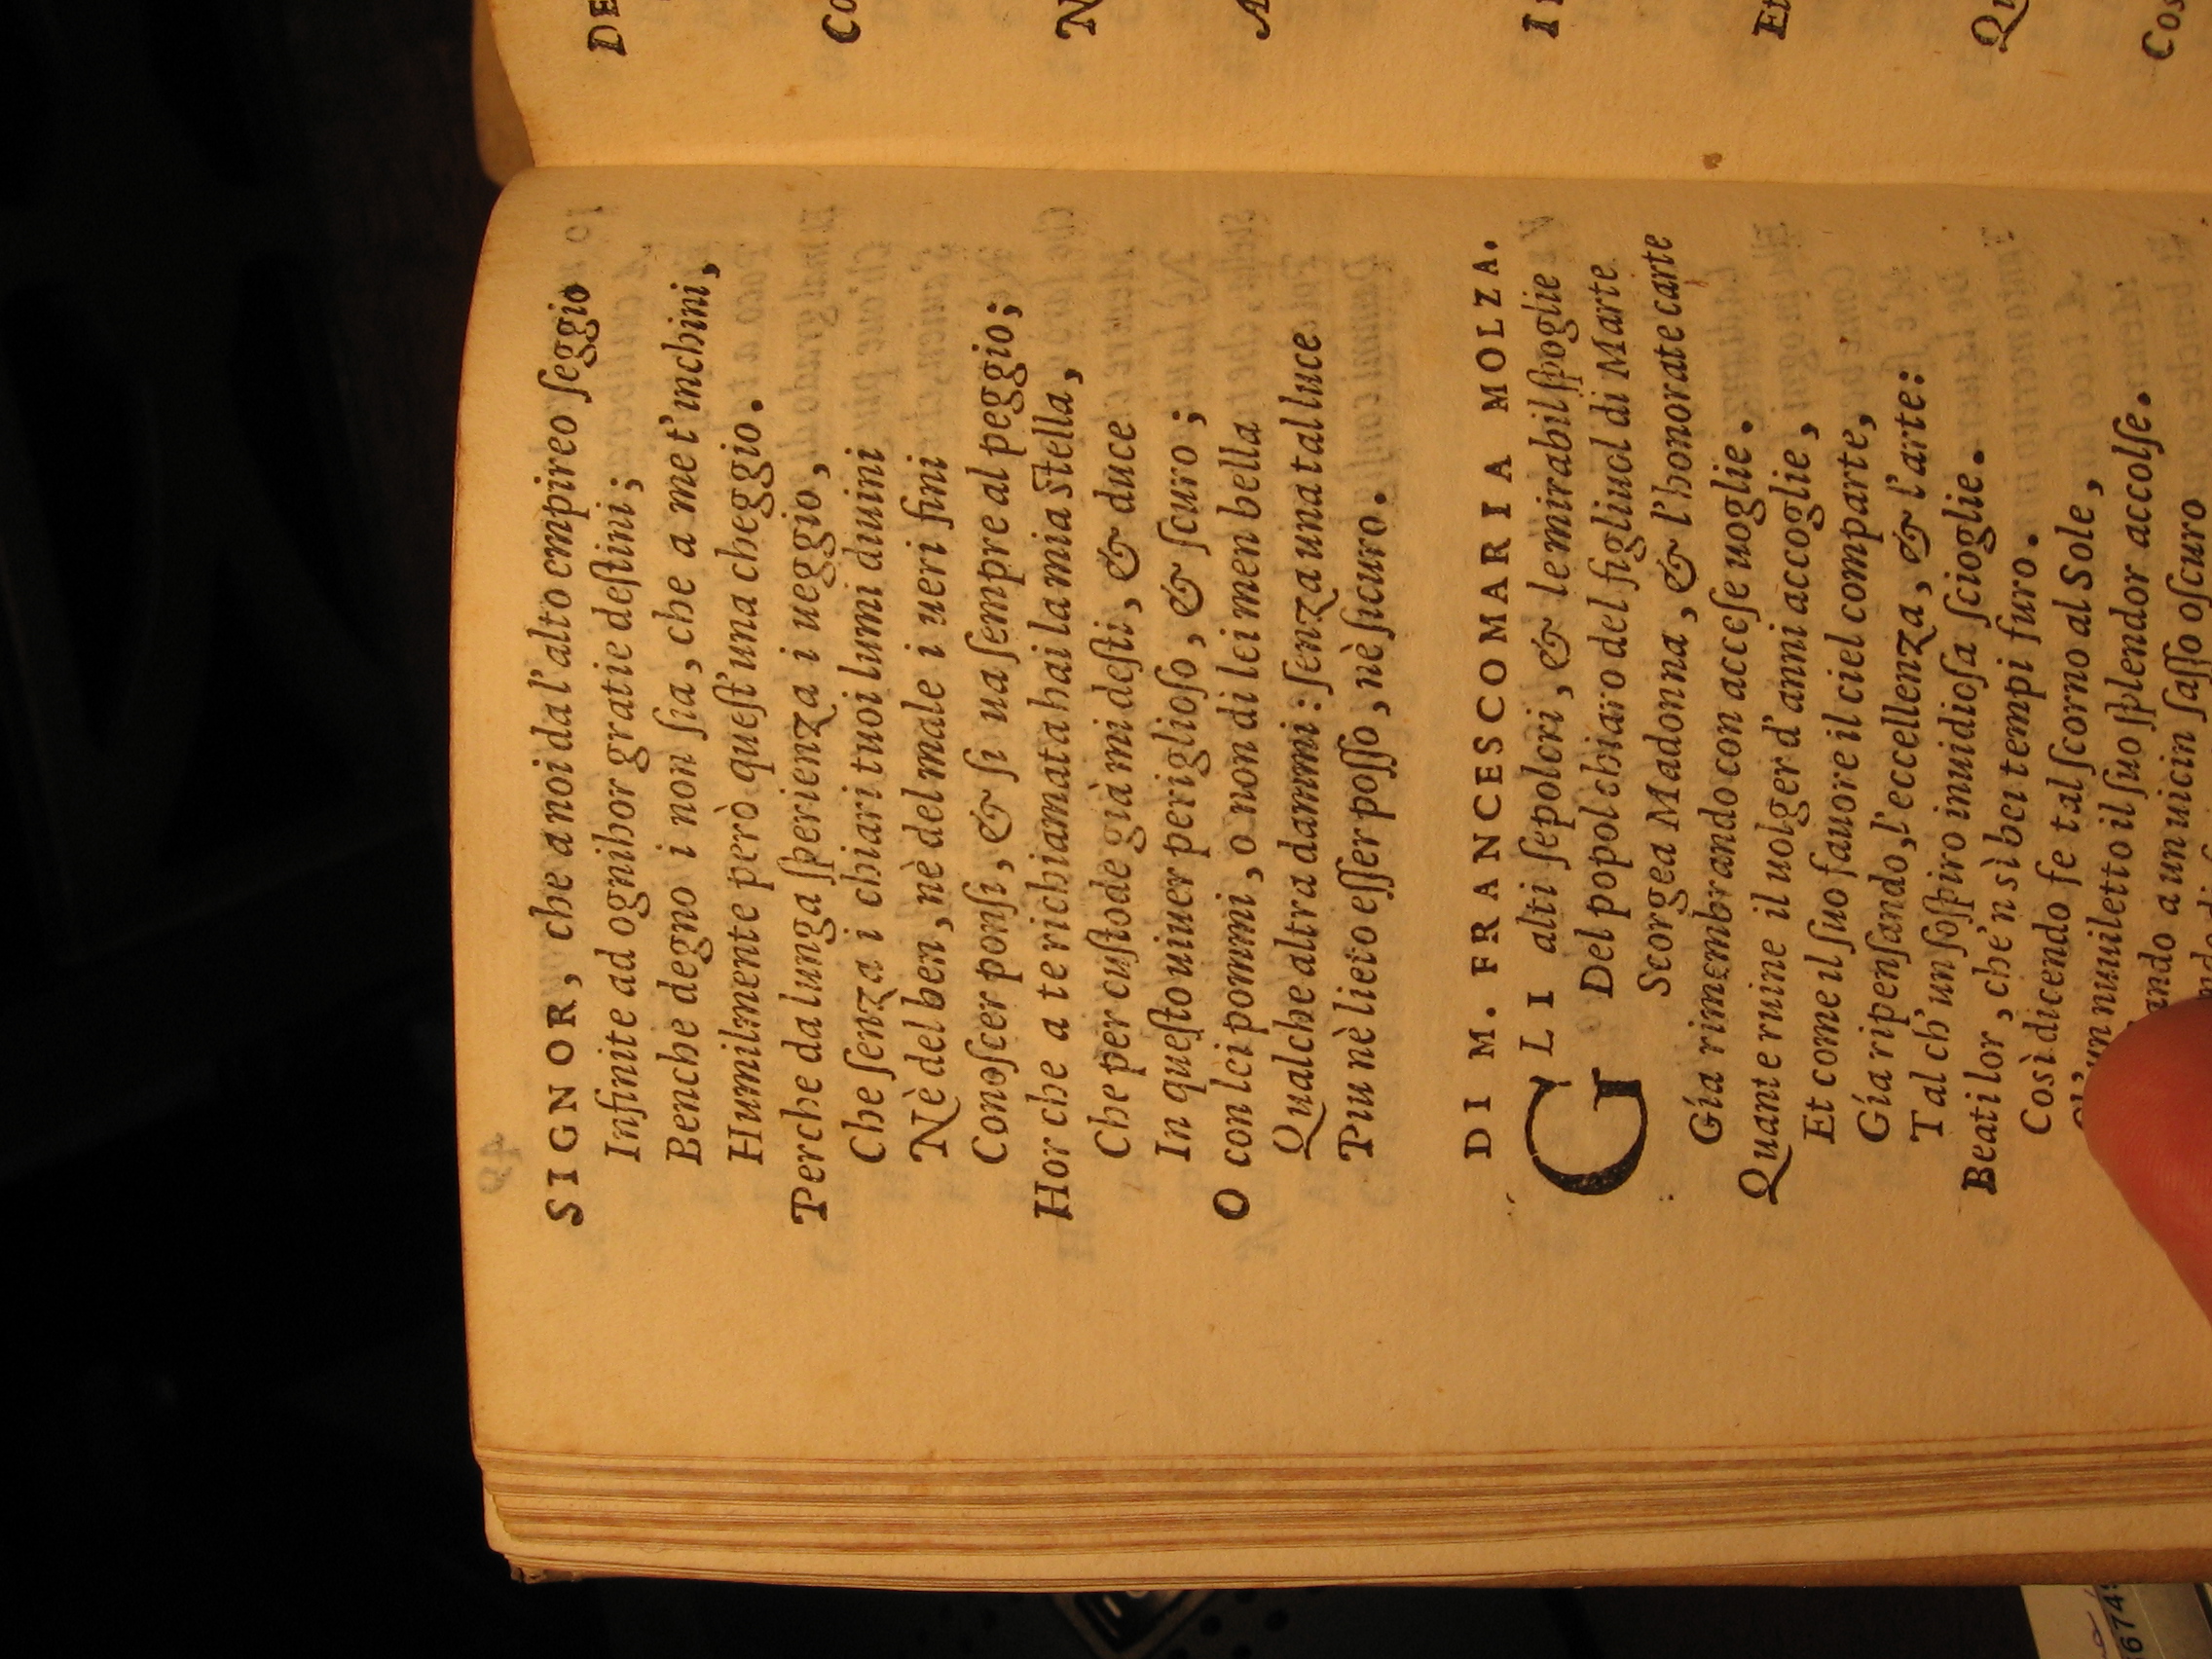 SIGNOR, che a noi da l'alto empireo ſeggio
Infinite ad ognihor gratie deſtini;
Benche degno i non ſia, che a me t'inchini,
Humilmente però queſt'una cheggio.
Perche da lunga ſperienza i ueggio,
Che ſenza i chiari tuoi lumi diuini
Nè del ben, nè del male i ueri fini
Conoſcer ponſi, & ſi ua ſempre al peggio;
Hor che a te richiamata hai la mia Stella,
Che per cuſtode già mi deſti, & duce
In queſto uiuer periglioſo, & ſcuro;
O con lei pommi, o non di lei men bella
Qualche altra dammi: ſenza una tal luce
Piu nè lieto eſſer poſſo, nè ſicuro.
DI M. FRANCESCOMARIA MOLZA.
GLI alti ſepolcri, & le mirabil ſpoglie
Del popol chiaro del figliuol di Marte
Scorgea Madonna, & l'honorate carte
Gía rimembrando con acceſe uoglie.
Quante ruine il uolger d'anni accoglie,
Et come il ſuo fauore il ciel comparte,
Gía ripenſando, l'eccellenza, & l'arte:
Tal ch'un ſoſpiro inuidioſa ſcioglie.
Beati lor, che'n sì bei tempi furo.
Così dicendo fe tal ſcorno al Sole,
un nuuiletto il ſuo ſplendor accolſe.
ando a un uicin ſaſſo oſcuro
De
Co
N
A
Et
Qu
Cos
6749